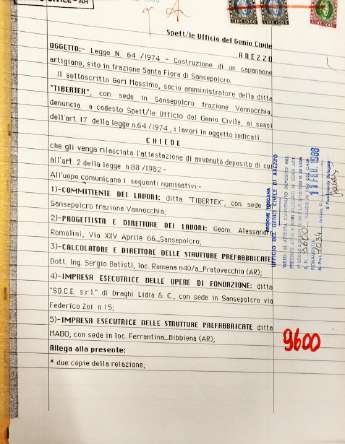 Spett/le Ufficio del Genio Civile
AREZZO
OGGETTO:- Legge N. 64 /1974 - Costruzione di un capannone
artigiano, sito in frazione Santa Fiora di Sansepolcro.
Il sottoscritto Gori Massimo, socio amministratore della ditta
"TIBERTEX", con sede in Sansepolcro frazione Vannocchia,
denuncia a codesto Spett/le Ufficio del Genio Civile, ai sensi
dell'art. 17 della legge n.64 /1974, i lavori in oggetto indicati.
CHIEDE
che gli venga rilasciata l'attestazione di avvenuto deposito di cui
all'art. 2 della legge n.88 /1982.-
All'uopo comunica i seguenti nominativi:-
1)-COMMITTENTE DEI LAVORI; ditta "TIBERTEX", con sede
Sansepolcro frazione Vannocchia.
2)-PROGETTISTA E DIRETTORE DEI LAVORI; Geom. Alessandro
Romolini, Via XIV Aprile 66, Sansepolcro.
3)-CALCOLATORE E DIRETTORE DELLE STRUTTURE PREFABBRICATE
Dott. Ing. Sergio Batisti, loc. Romena n40/a_Pratovecchia (AR);
4)-IMPRESA ESECUTRICE DELLE OPERE DI FONDAZIONE: ditta
"SO.CE. s.r.l." di Draghi Lidia & C., con sede in Sansepolcro via
Federico Zoi n.15;
5)-IMPRESA ESECUTRICE DELLE STRUTTURE PREFABBRICATE ditta
MABO, con sede in loc. Ferrantina_Bibbiena (AR);
Allega alla presente:
* due copie della relazione;
REGIONE TOSCANA
UFFICIO DEL GENIO CIVILE DI AREZZO
9600